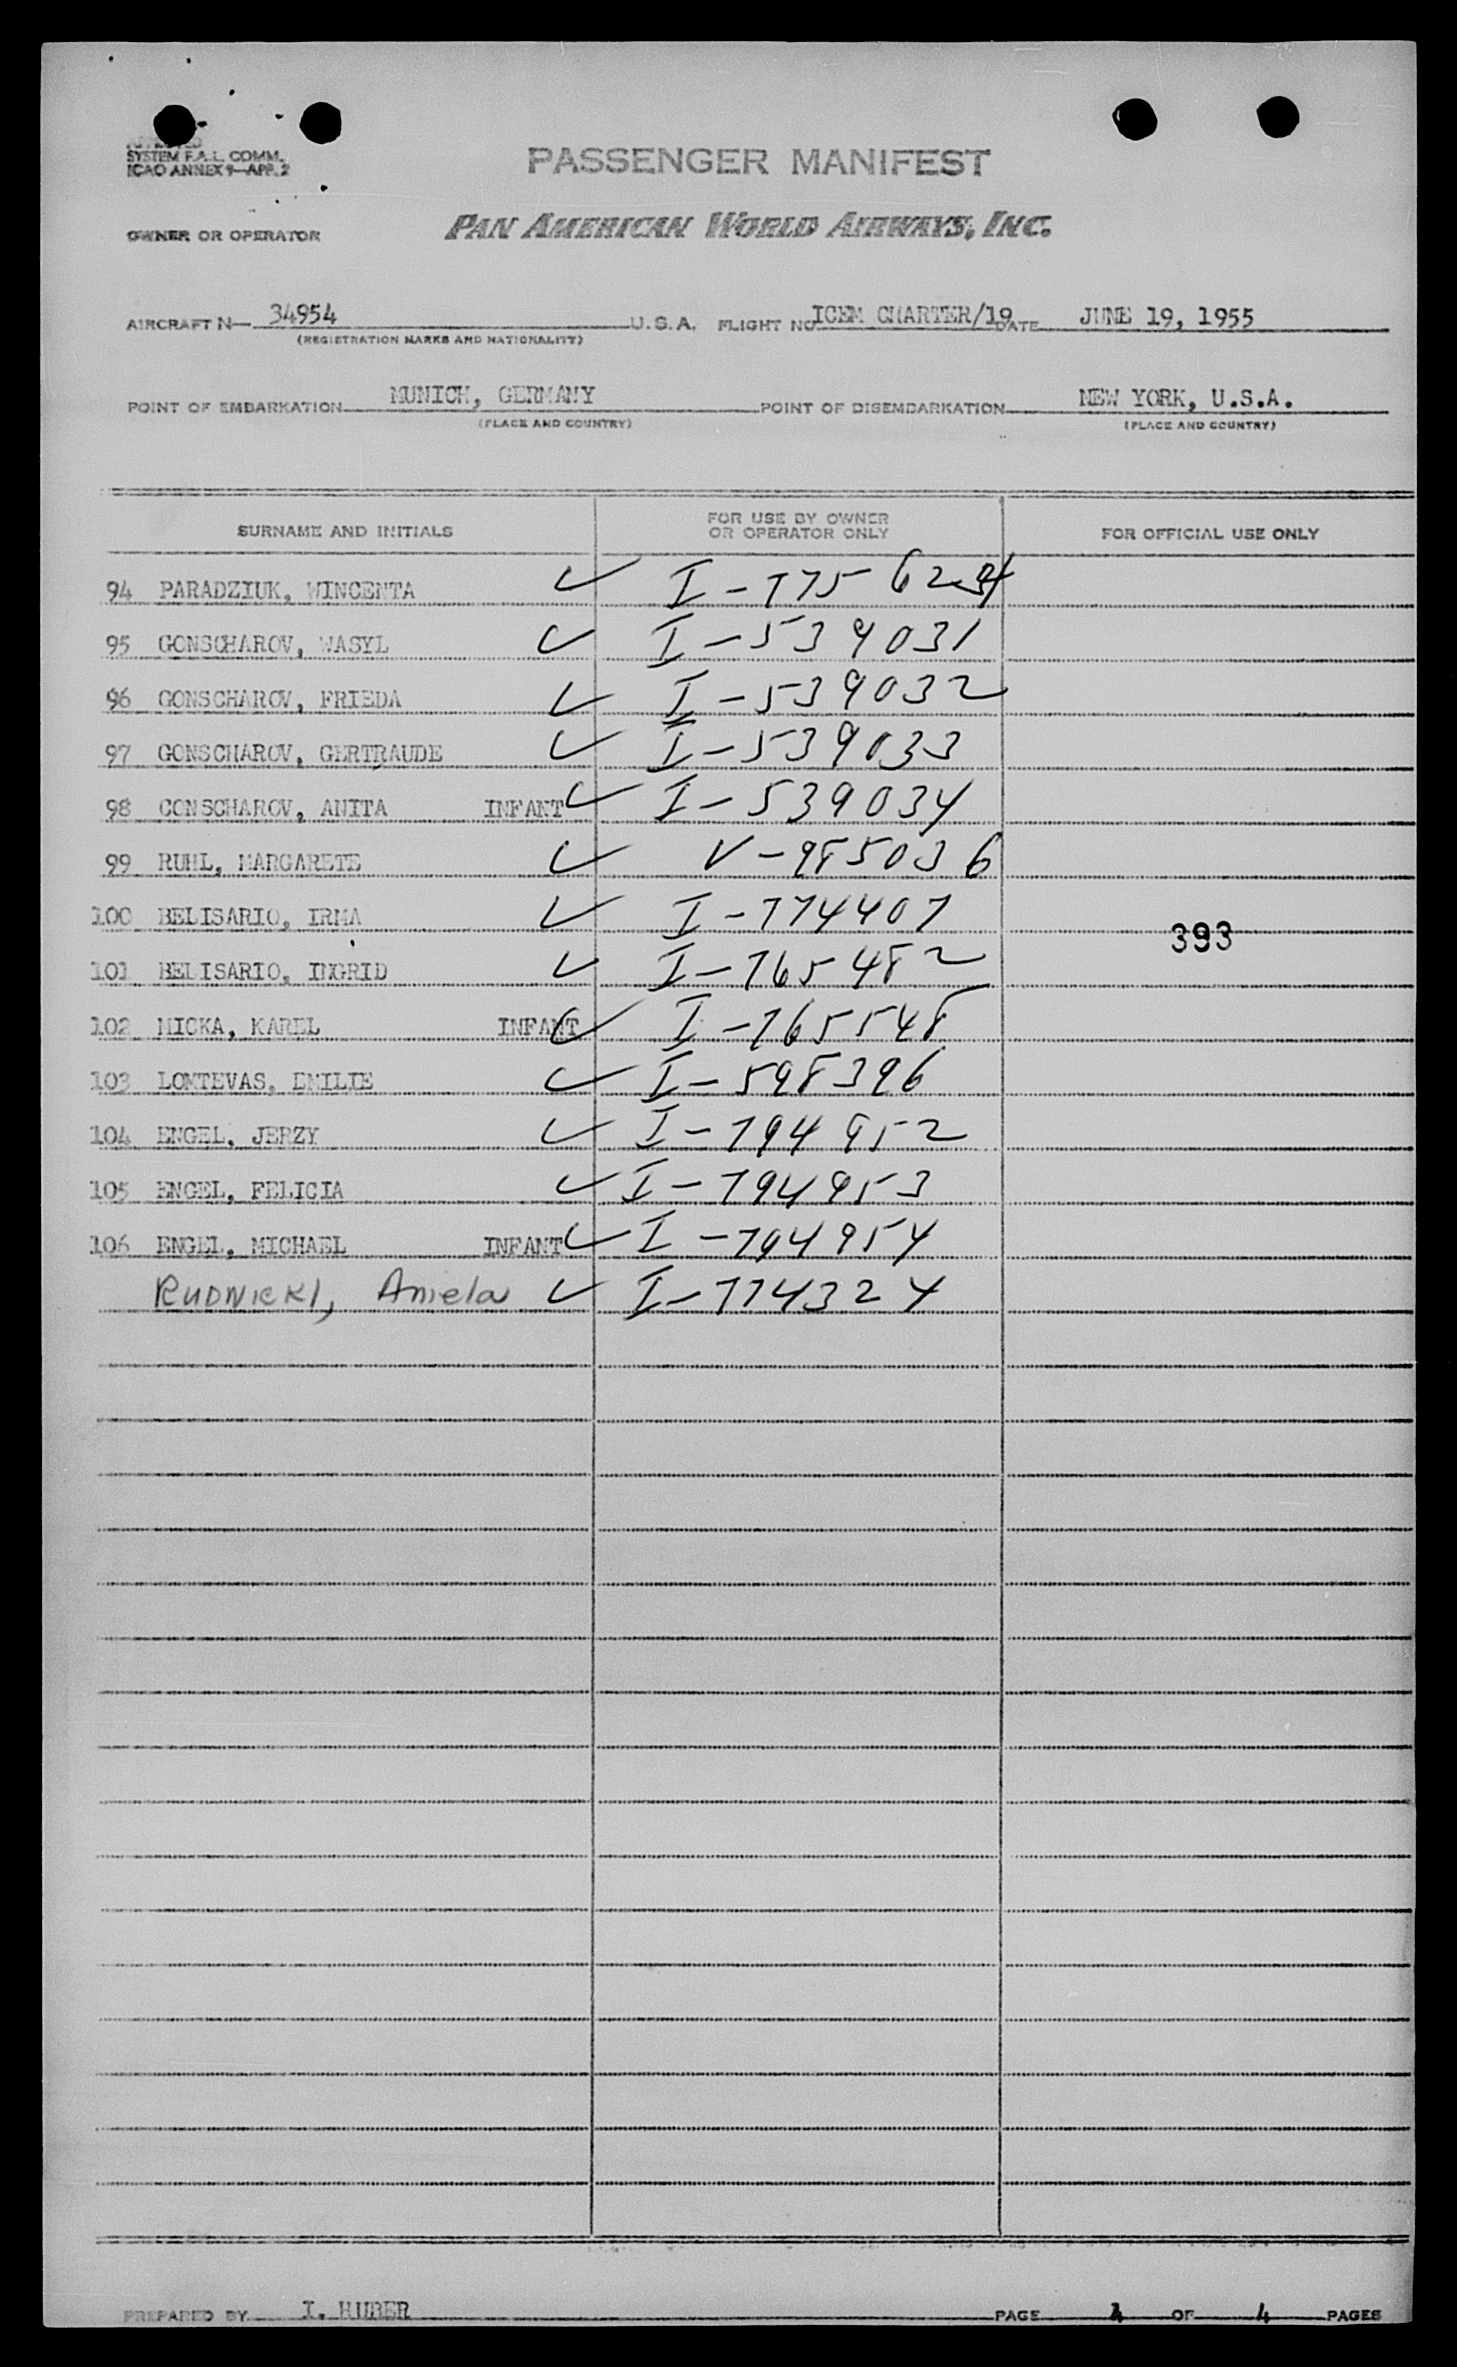 SYSTEM F.A.L. COMM.
ICAO ANNEX 9—APP. 2
PASSENGER MANIFEST
OWNER OR OPERATOR PAN AMERICAN WORLD AIRWAYS, INC.
AIRCRAFT N— 34954 U.S.A. FLIGHT NO. ICEM CHARTER/19 DATE JUNE 19, 1955
(REGISTRATION MARKS AND NATIONALITY)
POINT OF EMBARKATION MUNICH, GERMANY POINT OF DISEMBARKATION NEW YORK, U.S.A.
(PLACE AND COUNTRY) (PLACE AND COUNTRY)
SURNAME AND INITIALS FOR USE BY OWNER OR OPERATOR ONLY FOR OFFICIAL USE ONLY
94 PARADZIUK, WINCENTA ✓ I-775624
95 GONSCHAROV, WASYL ✓ I-539031
96 GONSCHAROV, FRIEDA ✓ I-539032
97 GONSCHAROV, GERTRAUDE ✓ I-539033
98 GONSCHAROV, ANITA INFANT ✓ I-539034
99 RUHL, MARGARETE ✓ V-985036
100 BELISARIO, IRMA ✓ I-774407
393
101 BELISARIO, INGRID ✓ I-765482
102 MICKA, KAREL INFANT ✓ I-765548
103 LOMTEVAS, EMILIE ✓ I-598396
104 ENGEL, JERZY ✓ I-794952
105 ENGEL, FELICIA ✓ I-794953
106 ENGEL, MICHAEL INFANT ✓ I-794954
RUDNICKI, Aniela ✓ I-774324
PREPARED BY I. HUBER PAGE 4 OF 4 PAGES